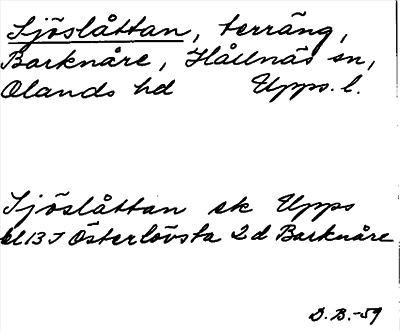 Sjöslåttan, terräng,
Barknåre, Hållnäs sn,
Olands hd Upps. l.
Sjöslåttan ek Upps
bl 13 I Österlövsta 2 d Barknåre
D.B.-59